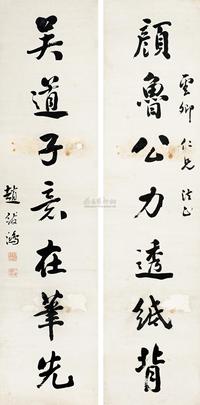 顔魯公力透紙背
雲卿仁兄法正
吴道子意在筆先